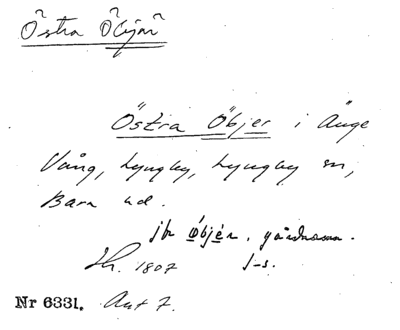 Östra Öbjär
Östra Öbjer i Änge
Vång, Lyngby, Lyngby sn,
Bara hd.
jfr Øbjér, gårdnamn.
1807 J-s.
Nr 6331. Ant 7.